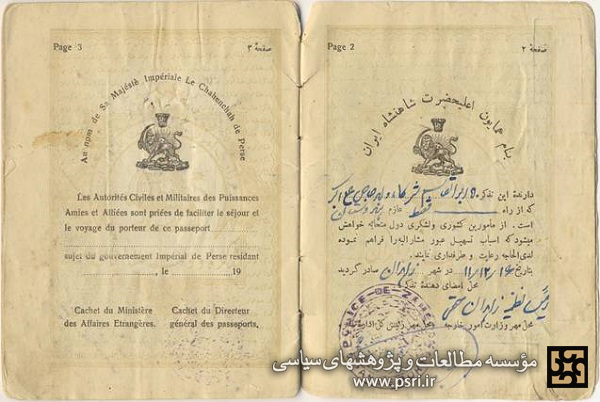 Page 3
صفحهٔ ۳
Au nom de Sa Majésté Impériale Le Chahinchah de Perse
Les Autorités Civiles et Militaires des Puissances
Amies et Alliées sont priées de faciliter le séjour et
le voyage du porteur de ce passeport
sujet du gouvernement Impérial de Perse residant
, le 19
Cachet du Ministère
des Affaires Etrangères.
Cachet du Directeur
général des passeports,
Page 2
صفحهٔ ۲
بنام همایون اعلیحضرت شاهنشاه ایران
دارندهٔ این تذکره
که از راه عازم
است . از مأمورین کشوری ولشکری دول متحابه خواهش
میشود که اسباب تسهیل عبور مشارالیه را فراهم نموده
لدی الحاجه رعایت و طرفداری نمایند .
بتاریخ ۱۱/۱۲/۱۶ در شهر زاهدان صادر گردید
محل امضای دهندهٔ تذکره
رئیس نظمیه زاهدان
محل مهر وزارت امور خارجه
POLICE-DE-ZAHE
مؤسسه مطالعات و پژوهشهای سیاسی
www.psri.ir